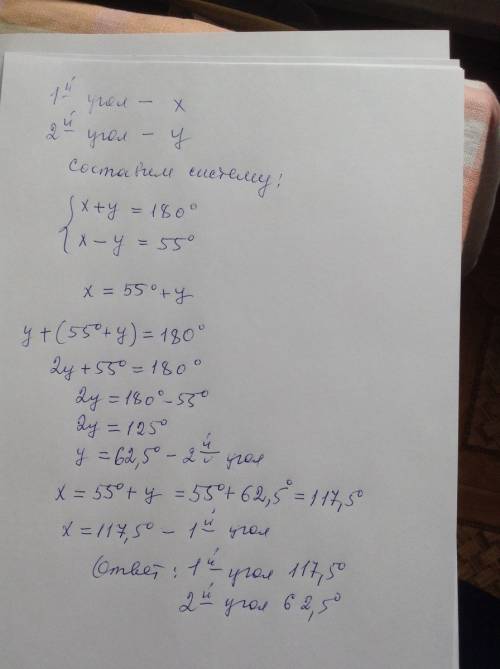 1й угол - x
2й угол - y
Составим систему:
{ x+y = 180°
x-y = 55°
x = 55°+y
y+(55°+y)=180°
2y+55°=180°
2y=180°-55°
2y=125°
y=62,5° - 2й угол
x=55°+y=55°+62,5°=117,5°
x=117,5° - 1й угол
Ответ: 1й угол 117,5°
2й угол 62,5°